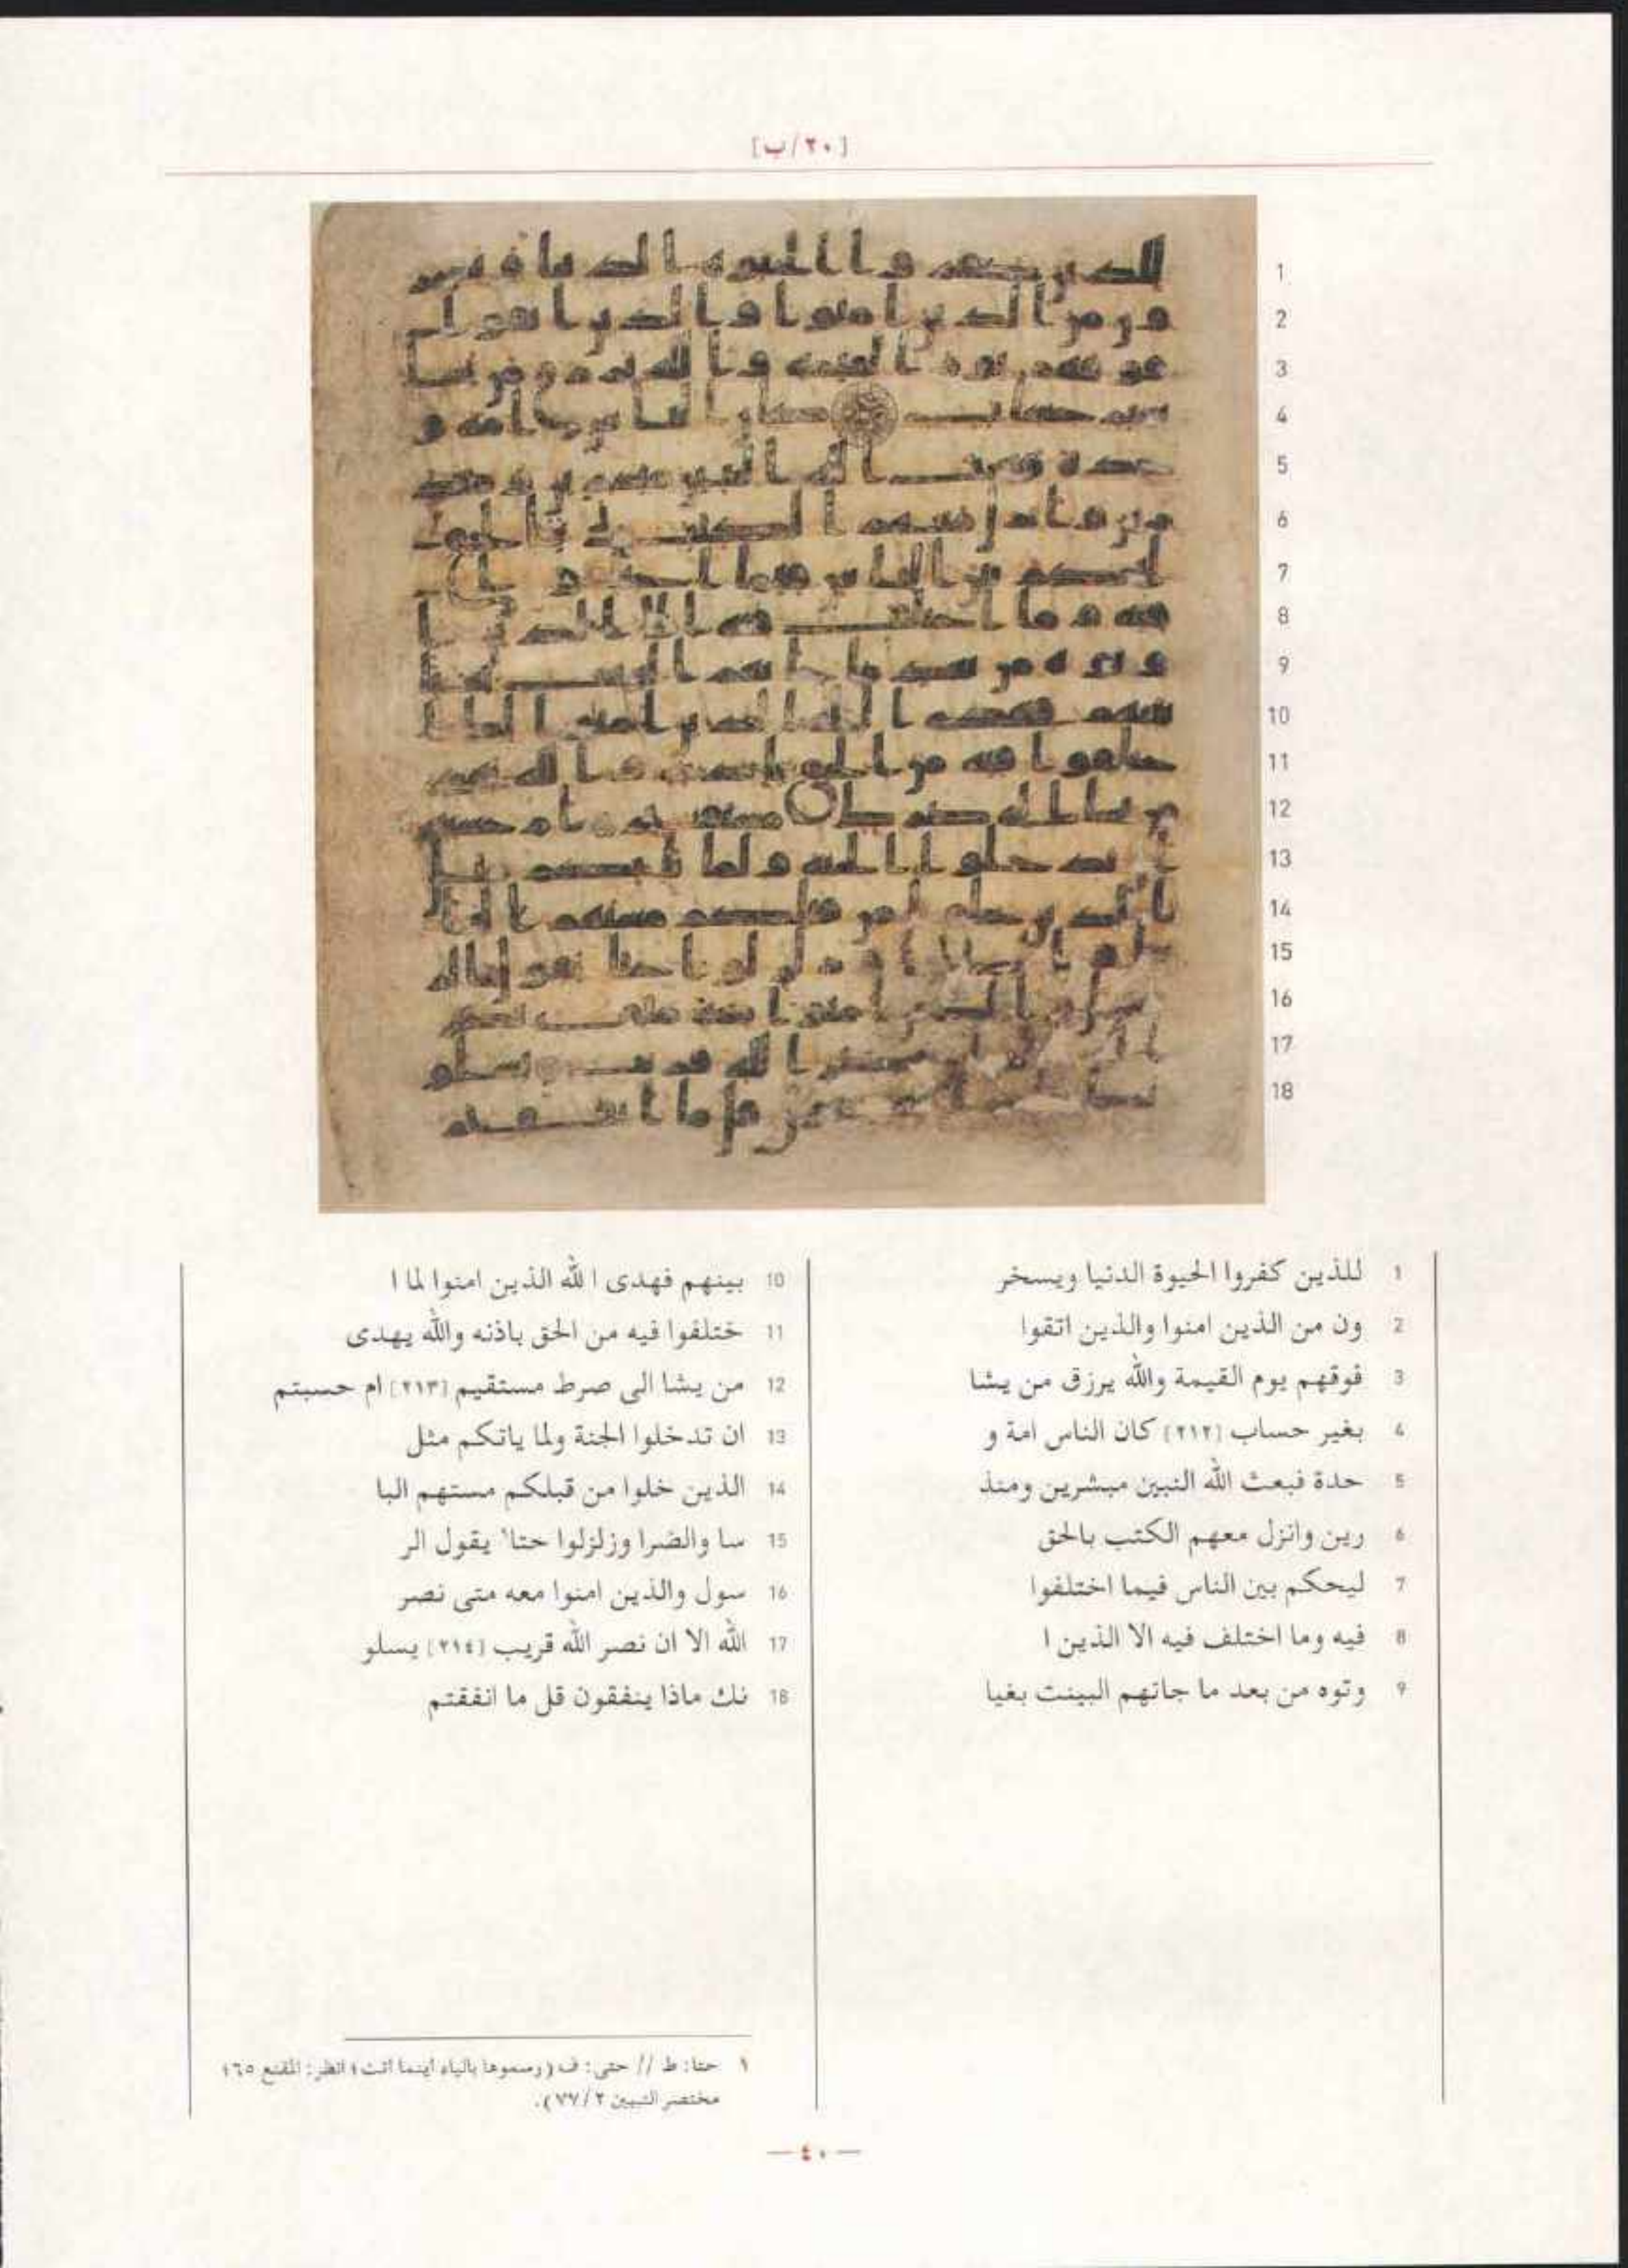 [٢٠/ب]
1
2
3
4
5
6
7
8
9
10
11
12
13
14
15
16
17
18
1 للذين كفروا الحيوة الدنيا ويسخر
2 ون من الذين امنوا والذين اتقوا
3 فوقهم يوم القيمة والله يرزق من يشا
4 بغير حساب [٢١٢] كان الناس امة و
5 حدة فبعث الله النبين مبشرين ومنذ
6 رين وانزل معهم الكتب بالحق
7 ليحكم بين الناس فيما اختلفوا
8 فيه وما اختلف فيه الا الذين ا
9 وتوه من بعد ما جاتهم البينت بغيا
10 بينهم فهدى الله الذين امنوا لما ا
11 ختلفوا فيه من الحق باذنه والله يهدى
12 من يشا الى صرط مستقيم [٢١٣] ام حسبتم
13 ان تدخلوا الجنة ولما ياتكم مثل
14 الذين خلوا من قبلكم مستهم البا
15 سا والضرا وزلزلوا حتا١ يقول الر
16 سول والذين امنوا معه متى نصر
17 الله الا ان نصر الله قريب [٢١٤] يسلو
18 نك ماذا ينفقون قل ما انفقتم
١ حتا: ط // حتى: ف (رسموها بالياء أينما أتت؛ انظر: المقنع ٦٥؛
مختصر التبيين ٢/ ٧٧).
— ٤٠ —